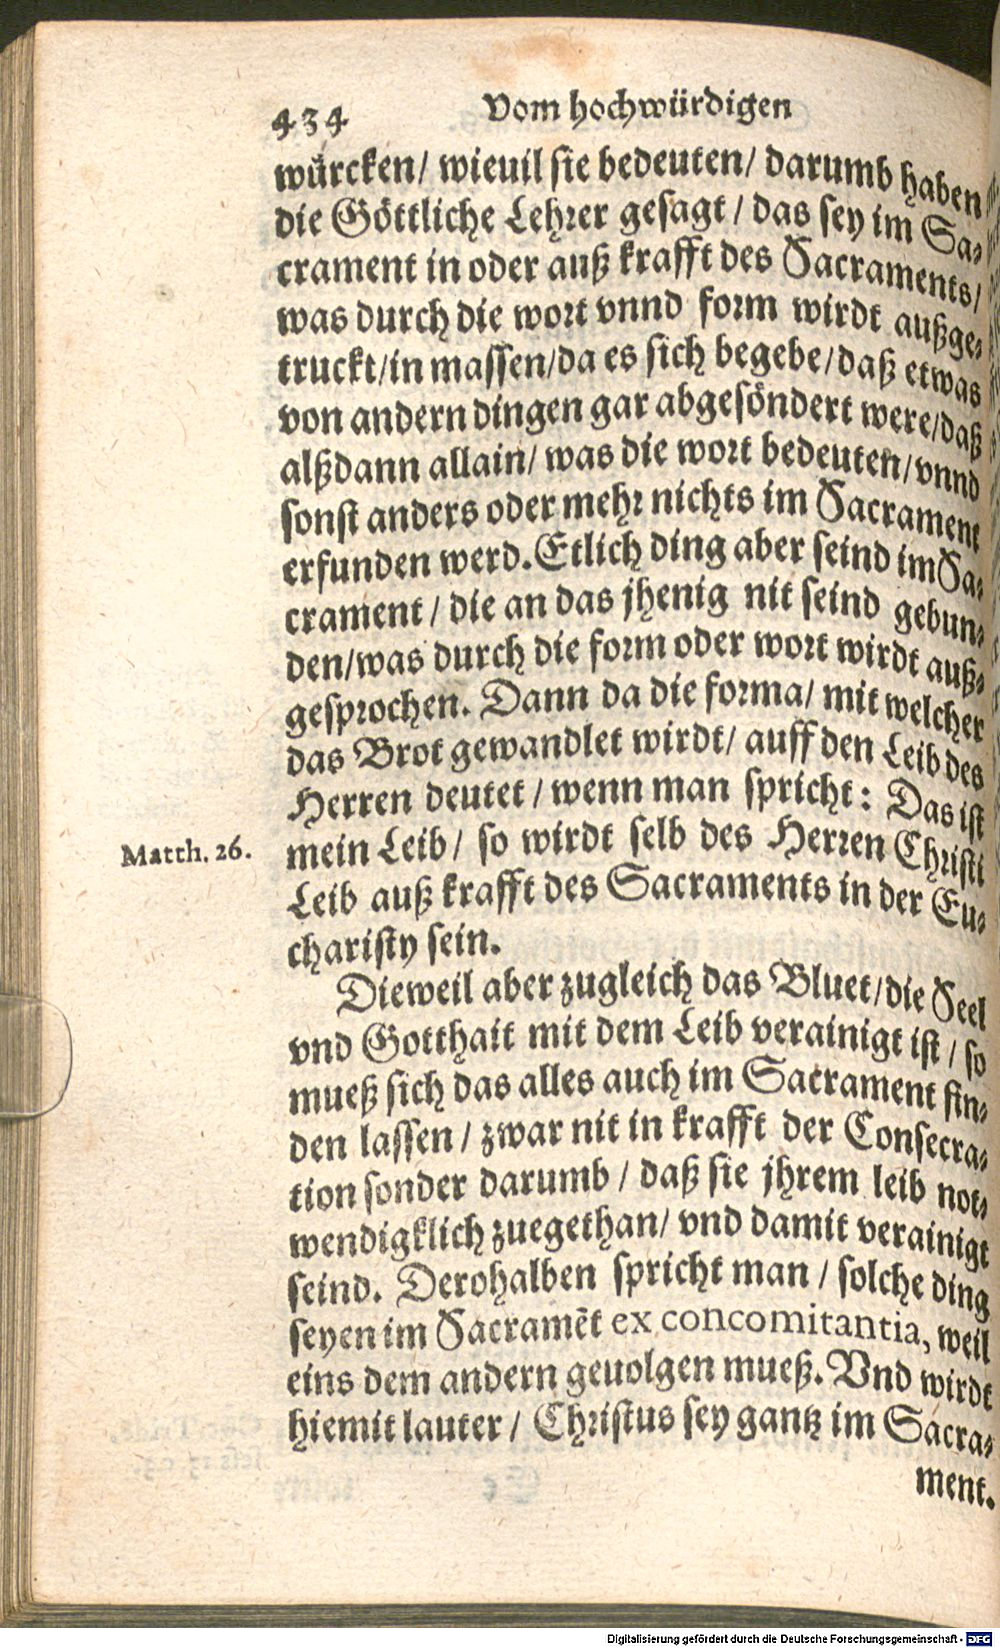 434 Vom hochwürdigen
würcken/ wieuil sie bedeuten/ darumb haben
die Göttliche Lehrer gesagt/ das sey im Sa-
crament in oder auß krafft des Sacraments/
was durch die wort vnnd form wirdt außge-
truckt/in massen/da es sich begebe/daß etwas
von andern dingen gar abgesöndert were/daß
alßdann allain/ was die wort bedeuten/vnnd
sonst anders oder mehr nichts im Sacrament
erfunden werd. Etlich ding aber seind im Sa-
crament/ die an das jhenig nit seind gebun-
den/was durch die form oder wort wirdt auß-
gesprochen. Dann da die forma/ mit welcher
das Brot gewandlet wirdt/ auff den Leib des
Herren deutet/ wenn man spricht: Das ist
Matth. 26. mein Leib/ so wirdt selb des Herren Christi
Leib auß krafft des Sacraments in der Eu-
charisty sein.
Dieweil aber zugleich das Bluet/die Seel
vnd Gotthait mit dem Leib verainigt ist/ so
mueß sich das alles auch im Sacrament fin-
den lassen/ zwar nit in krafft der Consecra-
tion sonder darumb/ daß sie jhrem leib not-
wendigklich zuegethan/ vnd damit verainigt
seind. Derohalben spricht man/ solche ding
seyen im Sacramēt ex concomitantia, weil
eins dem andern geuolgen mueß. Vnd wirdt
hiemit lauter/ Christus sey gantz im Sacra-
ment.
Digitalisierung gefördert durch die Deutsche Forschungsgemeinschaft - DFG